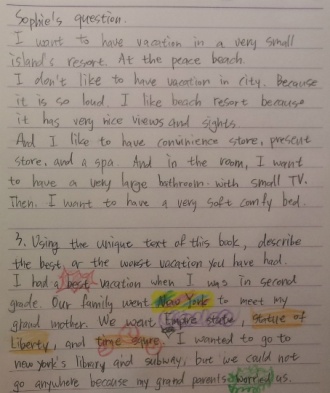 Sophie's question.
I want to have vacation in a very small
island's resort. At the peace beach.
I don't like to have vacation in city. Because
it is so loud. I like beach resort because
it has very nice views and sights.
And I like to have convinience store, present
store, and a spa. And in the room, I want
to have a very large bathroom. with small TV.
Then, I want to have a very soft comfy bed.
3. Using the unique text of this book, describe
the best, or the worst vacation you have had.
I had a best vacation when I was in second
grade. Our family went New York to meet my
grand mother. We went Empire state, statue of
Liberty, and time square. I wanted to go to
new york's library and subway, but we could not
go anywhere because my grand parents worried us.